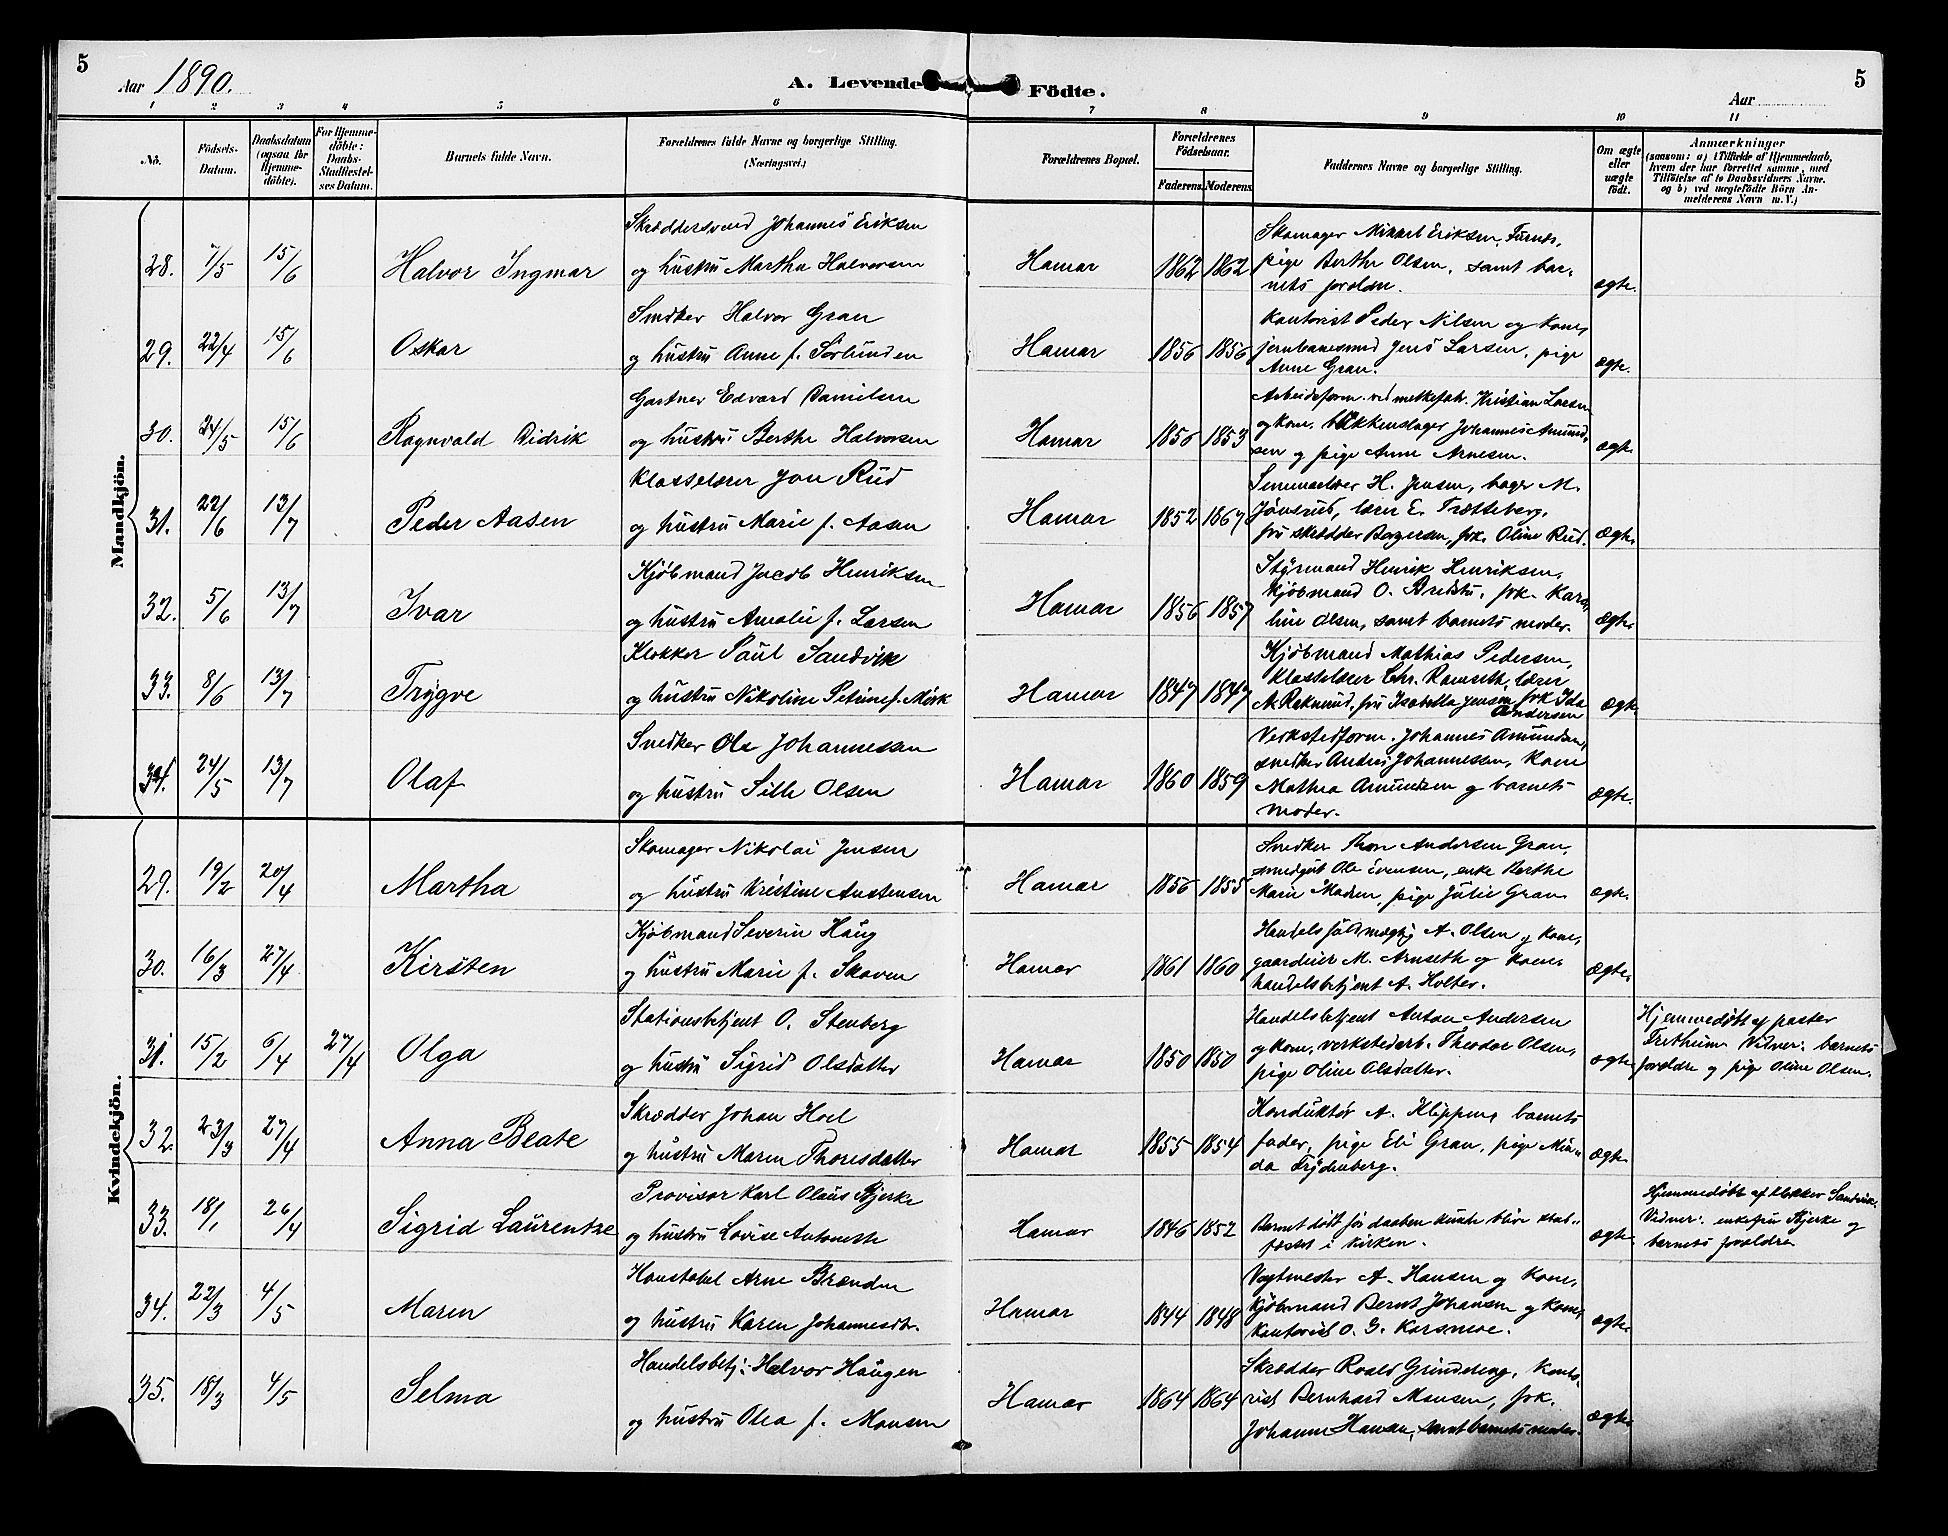 5
Aar 1890.
A. Levende Födte.
5
Aar
1 2 3 4 5 6 7 8 9 10 11
No.
Födsels-Datum.
Daabsdatum (ogsaa for Hjemme-døbte).
For Hjemme-döbte: Daabs-Stadfæstel-ses Datum.
Barnets fulde Navn.
Forældrenes fulde Navne og borgerlige Stilling. (Næringsvei.)
Forældrenes Bopæl.
Forældrenes Födselsaar.
Faderens. Moderens.
Faddernes Navne og borgerlige Stilling.
Om ægte eller uægte födt.
Anmærkninger
(saasom: a) i Tilfælde af Hjemmedaab,
hvem der har forrettet samme, med
Tilföielse af to Daabsvidners Navne.
og b) ved uægtefödte Börn An-
melderens Navn m. V.)
Mandkjön.
28. 7/5 15/6 Halvor Ingmar
Skræddersvend Johannes Eriksen
og hustru Martha Halvorsen
Hamar 1862 1862
Skomager Mikkel Eriksen, Furnes,
pige Berthe Olsen, samt bar-
nets forældre.
ægte.
29. 22/4 15/6 Oskar
Snedker Halvor Gran
og hustru Anne f. Sørlunden
Hamar 1856 1856
Kontorist Peder Nilsen og kone,
jernbanesmed Jens Larsen, pige
Anne Gran.
ægte.
30. 24/5 15/6 Ragnvald Didrik
Gartner Edvard Danielsen
og hustru Berthe Halvorsen
Hamar 1856 1853
Arbeidsform. ved melkefabr. Kristian Larsen
og kone, blikkenslager Johannes Amund-
sen og pige Anne Arnesen.
ægte
31. 22/6 13/7 Peder Aasen
Klasselærer Jon Rud
og hustru Marie f. Aasen
Hamar 1852 1867
H. Jensen, bager M.
Jønsrud, lærer E. Trætteberg,
fru skrædder Borgersen, frk. Oline Rud.
Ægte
32. 5/6 13/7 Ivar
Kjøbmand Jacob Henriksen
og hustru Amalie f. Larsen
Hamar 1856 1857
Styrmand Henrik Henriksen,
kjøbmand O. Bredstu, frk. Karo-
line Olsen, samt barnets moder.
Ægte
33. 8/6 13/7 Trygve
Klokker Paul Sandvik
og hustru Nikoline Petrine f. Mørk
Hamar 1847 1847
Kjøbmand Mathias Pedersen,
klasselærer Chr. Ramseth, lærer
A. Røkmund, fru Isabella Jensen, frk Ida
Andersen
Ægte
34. 24/5 13/7 Olaf
Snedker Ole Johannessen
og hustru Sille Olsen
Hamar 1860 1859
Verkstedform. Johannes Amundsen,
snedker Andreas Johannessen, kone
Mathea Amundsen og barnets
moder.
Ægte.
Kvindekjön.
29. 19/2 20/4 Martha
Skomager Nikolai Jensen
og hustru Kristine Austensen
Hamar 1856 1855
Snedker Thor Andersen Gran,
smedgut Ole Evensen, enke Berthe
Marie Madsen, pige Julie Gran
ægte.
30. 16/3 27/4 Kirsten
Kjøbmand Severin Haug
og hustru Marie f. Skaven
Hamar 1861 1860
Handelsfuldmægtig A. Olsen og kone,
gaardeier M. Arnseth og kone
handelsbetjent A. Holter.
Ægte
31. 15/2 6/4 27/4 Olga
Stationsbetjent O. Stenberg
og hustru Sigrid Olsdatter
Hamar 1850 1850
Handelsbetjent Anton Andersen
og kone, verkstedarb. Theodor Olsen,
pige Oline Olsdatter.
ægte
Hjemmedøbt af pastor
Fretheim Vidner: barnets
forældre og pige Oline Olsen.
32. 23/3 27/4 Anna Beate
Skrædder Johan Hoel
og hustru Maren Thoresdatter
Hamar 1855 1854
Konduktør A. Klippen, barnets
fader, pige Eli Gran, pige Min-
da Frydenberg.
Ægte
33. 18/1 26/4 Sigrid Laurentze
Provisor Karl Olaus Bjerke
og hustru Lovise Antonette
Hamar 1846 1852
Barnet dødt før daaben kunde blive stad-
fæstet i kirken.
ægte
Hjemmedøbt af klokker Sandvik
Vidner: enkefru Bjerke og
barnets forældre
34. 22/3 4/5 Maren
Konstabel Arne Brænden
og hustru Karen Johannesdt.
Hamar 1844 1848
Vagtmester A. Hansen og kone,
kjøbmand Bernt Johansen og kone,
kontorist O. G. Korsmoe.
Ægte
35. 18/3 4/5 Selma
Handelsbetj. Halvor Haugen
og hustru Olea f. Monsen
Hamar 1864 1864
Skrædder Roald Grindeng, konto-
rist Bernhard Monsen, frk.
Johanne Hansen, samt barnets moder.
ægte